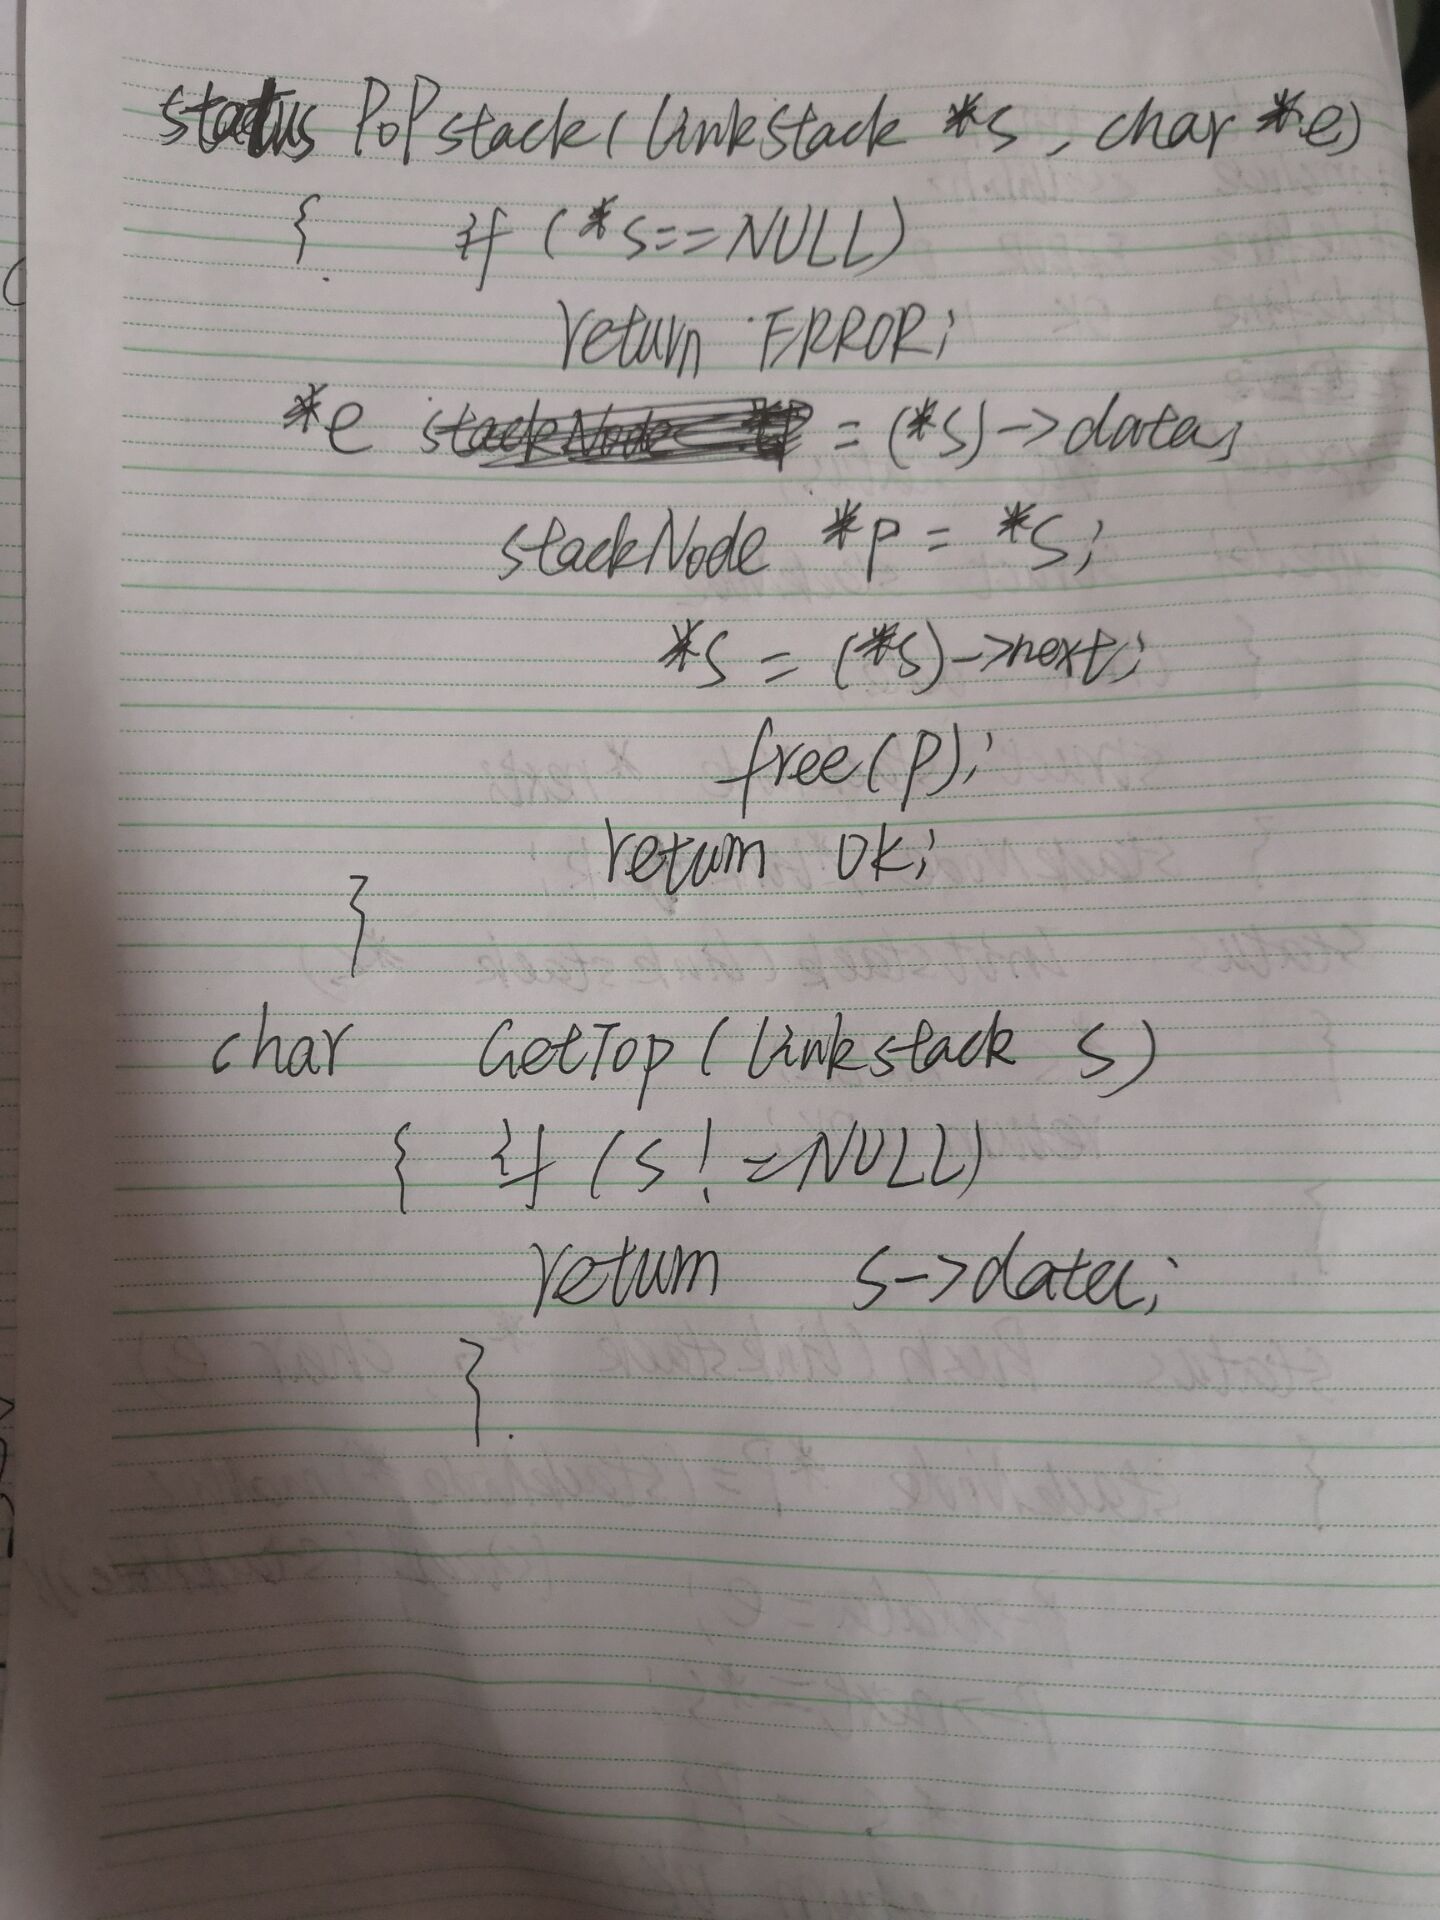 status PoPstack(linkstack *s, char *e)
{ if (*s==NULL)
return ERROR;
*e = (*s)->data;
stackNode *p = *s;
*s = (*s)->next;
free(p);
return OK;
}
char GetTop(linkstack s)
{ if (s!=NULL)
return s->data;
}